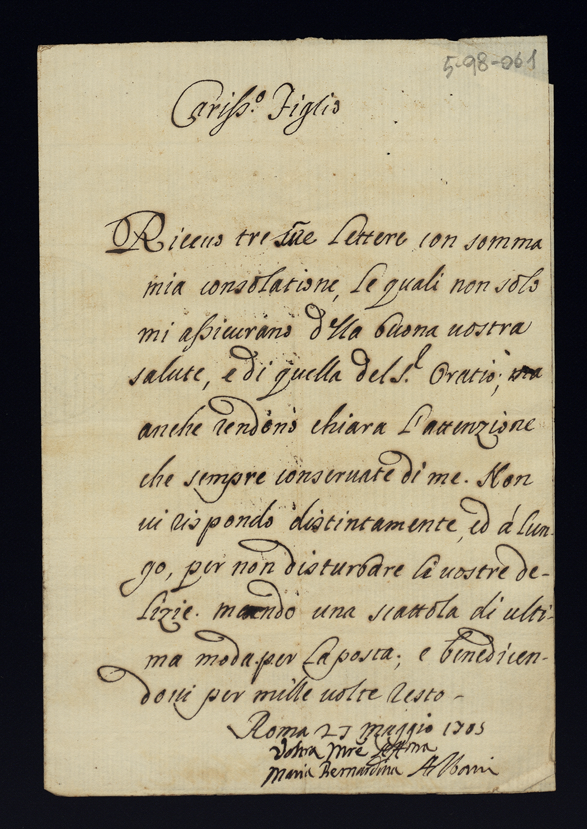 5-98-061
Cariss.º Figlio
Riceuo tre sue Lettere con somma
mia consolatione, Le quali non solo
mi assicurano della buona uostra
salute, e di quella del S.r Oratio; ma
anche rendono chiara L'attenzione
che sempre conseruate di me. Non
ui rispondo distintamente, ed á lun-
go, per non disturbare Le uostre de-
lizie. mando una scattola di ulti-
ma moda per La posta; e benedicen-
doui per mille uolte resto -
Roma 27 maggio 1705
Vostra Mre
Maria Bernardina Albani